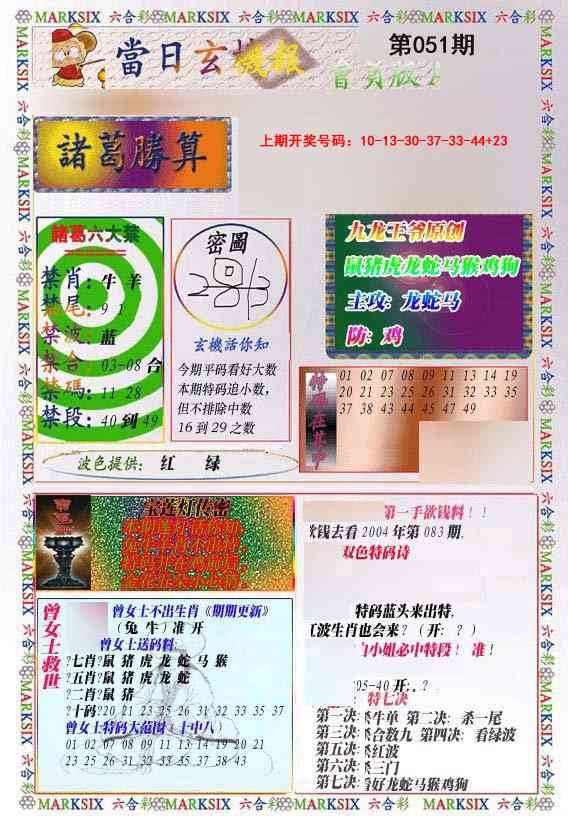 MARKSIX 六合彩 MARKSIX 六合彩 MARKSIX 六合彩 MARKSIX 六合彩 MARKSIX 六合彩
當日玄機報
第051期
諸葛勝算
上期开奖号码：10-13-30-37-33-44+23
諸葛六大禁
禁肖：牛 羊
禁尾：9 1
禁波：蓝
禁合：03-08 合
禁碼：11 28
禁段：40 到 49
密圖
玄機活你知
今期平码看好大数
本期特码追小数，
但不排除中数
16 到 29 之数
九龙王爷原创
鼠猪虎龙蛇马猴鸡狗
主攻：龙蛇马
防：鸡
01 02 07 08 09 11 13 14 19
20 21 23 25 26 31 32 33 35
37 38 43 44 45 47 49
波色提供： 红 绿
宝莲灯传密
曾女士救世
曾女士不出生肖《期期更新》
（兔 牛）准 开
曾女士送码料
七肖?鼠 猪 虎 龙 蛇 马 猴
五肖?鼠 猪 虎 龙 蛇
二肖?鼠 猪
十码?20 21 23 25 26 31 32 33 35 37
曾女士特码大范围（十中八）
01 02 07 08 09 11 13 14 19 20 21
23 25 26 31 32 33 35 37 38 43
第一手欲钱料！！
欲钱去看 2004 年第 083 期,
双色特码诗
特码蓝头来出特,
红波生肖也会来？（开：？）
白小姐必中特段！ 准！
05-40 开：.？
特七决
第一决:杀牛单 第二决: 杀一尾
第三决:杀合数九 第四决: 看绿波
第五决:杀红波
第六决:杀三门
第七决:看好龙蛇马猴鸡狗
MARKSIX 六合彩 MARKSIX 六合彩 MARKSIX 六合彩 MARKSIX 六合彩 MARKSIX 六合彩